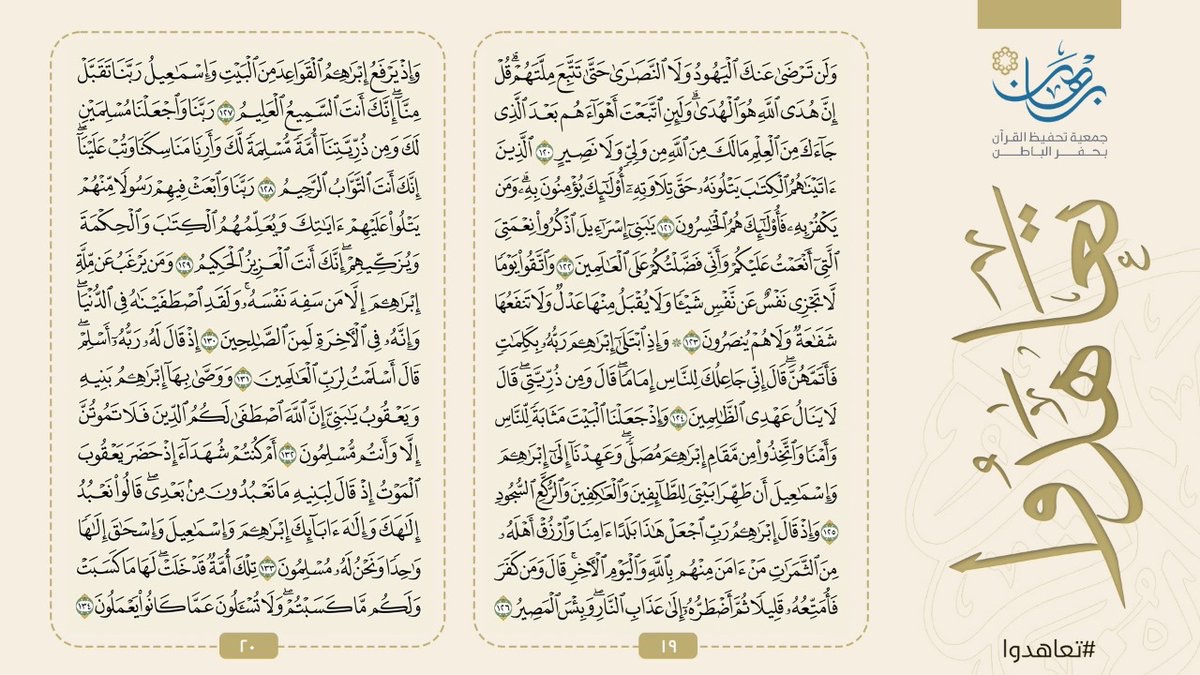 برهان
جمعية تحفيظ القرآن
بحفر الباطن
تعاهدوا
#تعاهدوا
وَلَن تَرْضَىٰ عَنكَ ٱلْيَهُودُ وَلَا ٱلنَّصَٰرَىٰ حَتَّىٰ تَتَّبِعَ مِلَّتَهُمْۗ قُلْ
إِنَّ هُدَى ٱللَّهِ هُوَ ٱلْهُدَىٰۗ وَلَئِنِ ٱتَّبَعْتَ أَهْوَآءَهُم بَعْدَ ٱلَّذِى
جَآءَكَ مِنَ ٱلْعِلْمِ مَا لَكَ مِنَ ٱللَّهِ مِن وَلِىٍّ وَلَا نَصِيرٍ ١٢٠ ٱلَّذِينَ
ءَاتَيْنَٰهُمُ ٱلْكِتَٰبَ يَتْلُونَهُۥ حَقَّ تِلَاوَتِهِۦٓ أُو۟لَٰٓئِكَ يُؤْمِنُونَ بِهِۦۗ وَمَن
يَكْفُرْ بِهِۦ فَأُو۟لَٰٓئِكَ هُمُ ٱلْخَٰسِرُونَ ١٢١ يَٰبَنِىٓ إِسْرَٰٓءِيلَ ٱذْكُرُوا۟ نِعْمَتِىَ
ٱلَّتِىٓ أَنْعَمْتُ عَلَيْكُمْ وَأَنِّى فَضَّلْتُكُمْ عَلَى ٱلْعَٰلَمِينَ ١٢٢ وَٱتَّقُوا۟ يَوْمًا
لَّا تَجْزِى نَفْسٌ عَن نَّفْسٍ شَيْـًٔا وَلَا يُقْبَلُ مِنْهَا عَدْلٌ وَلَا تَنفَعُهَا
شَفَٰعَةٌ وَلَا هُمْ يُنصَرُونَ ١٢٣ ۞ وَإِذِ ٱبْتَلَىٰٓ إِبْرَٰهِـۧمَ رَبُّهُۥ بِكَلِمَٰتٍ
فَأَتَمَّهُنَّۖ قَالَ إِنِّى جَاعِلُكَ لِلنَّاسِ إِمَامًاۖ قَالَ وَمِن ذُرِّيَّتِىۖ قَالَ
لَا يَنَالُ عَهْدِى ٱلظَّٰلِمِينَ ١٢٤ وَإِذْ جَعَلْنَا ٱلْبَيْتَ مَثَابَةً لِّلنَّاسِ
وَأَمْنًا وَٱتَّخِذُوا۟ مِن مَّقَامِ إِبْرَٰهِـۧمَ مُصَلًّىۖ وَعَهِدْنَآ إِلَىٰٓ إِبْرَٰهِـۧمَ
وَإِسْمَٰعِيلَ أَن طَهِّرَا بَيْتِىَ لِلطَّآئِفِينَ وَٱلْعَٰكِفِينَ وَٱلرُّكَّعِ ٱلسُّجُودِ
١٢٥ وَإِذْ قَالَ إِبْرَٰهِـۧمُ رَبِّ ٱجْعَلْ هَٰذَا بَلَدًا ءَامِنًا وَٱرْزُقْ أَهْلَهُۥ
مِنَ ٱلثَّمَرَٰتِ مَنْ ءَامَنَ مِنْهُم بِٱللَّهِ وَٱلْيَوْمِ ٱلْءَاخِرِۖ قَالَ وَمَن كَفَرَ
فَأُمَتِّعُهُۥ قَلِيلًا ثُمَّ أَضْطَرُّهُۥٓ إِلَىٰ عَذَابِ ٱلنَّارِۖ وَبِئْسَ ٱلْمَصِيرُ ١٢٦
١٩
وَإِذْ يَرْفَعُ إِبْرَٰهِـۧمُ ٱلْقَوَاعِدَ مِنَ ٱلْبَيْتِ وَإِسْمَٰعِيلُ رَبَّنَا تَقَبَّلْ
مِنَّآۖ إِنَّكَ أَنتَ ٱلسَّمِيعُ ٱلْعَلِيمُ ١٢٧ رَبَّنَا وَٱجْعَلْنَا مُسْلِمَيْنِ
لَكَ وَمِن ذُرِّيَّتِنَآ أُمَّةً مُّسْلِمَةً لَّكَ وَأَرِنَا مَنَاسِكَنَا وَتُبْ عَلَيْنَآۖ
إِنَّكَ أَنتَ ٱلتَّوَّابُ ٱلرَّحِيمُ ١٢٨ رَبَّنَا وَٱبْعَثْ فِيهِمْ رَسُولًا مِّنْهُمْ
يَتْلُوا۟ عَلَيْهِمْ ءَايَٰتِكَ وَيُعَلِّمُهُمُ ٱلْكِتَٰبَ وَٱلْحِكْمَةَ
وَيُزَكِّيهِمْۖ إِنَّكَ أَنتَ ٱلْعَزِيزُ ٱلْحَكِيمُ ١٢٩ وَمَن يَرْغَبُ عَن مِّلَّةِ
إِبْرَٰهِـۧمَ إِلَّا مَن سَفِهَ نَفْسَهُۥۚ وَلَقَدِ ٱصْطَفَيْنَٰهُ فِى ٱلدُّنْيَاۖ
وَإِنَّهُۥ فِى ٱلْءَاخِرَةِ لَمِنَ ٱلصَّٰلِحِينَ ١٣٠ إِذْ قَالَ لَهُۥ رَبُّهُۥٓ أَسْلِمْۖ
قَالَ أَسْلَمْتُ لِرَبِّ ٱلْعَٰلَمِينَ ١٣١ وَوَصَّىٰ بِهَآ إِبْرَٰهِـۧمُ بَنِيهِ
وَيَعْقُوبُ يَٰبَنِىَّ إِنَّ ٱللَّهَ ٱصْطَفَىٰ لَكُمُ ٱلدِّينَ فَلَا تَمُوتُنَّ
إِلَّا وَأَنتُم مُّسْلِمُونَ ١٣٢ أَمْ كُنتُمْ شُهَدَآءَ إِذْ حَضَرَ يَعْقُوبَ
ٱلْمَوْتُ إِذْ قَالَ لِبَنِيهِ مَا تَعْبُدُونَ مِنۢ بَعْدِىۖ قَالُوا۟ نَعْبُدُ
إِلَٰهَكَ وَإِلَٰهَ ءَابَآئِكَ إِبْرَٰهِـۧمَ وَإِسْمَٰعِيلَ وَإِسْحَٰقَ إِلَٰهًا
وَٰحِدًا وَنَحْنُ لَهُۥ مُسْلِمُونَ ١٣٣ تِلْكَ أُمَّةٌ قَدْ خَلَتْۖ لَهَا مَا كَسَبَتْ
وَلَكُم مَّا كَسَبْتُمْۖ وَلَا تُسْـَٔلُونَ عَمَّا كَانُوا۟ يَعْمَلُونَ ١٣٤
٢٠